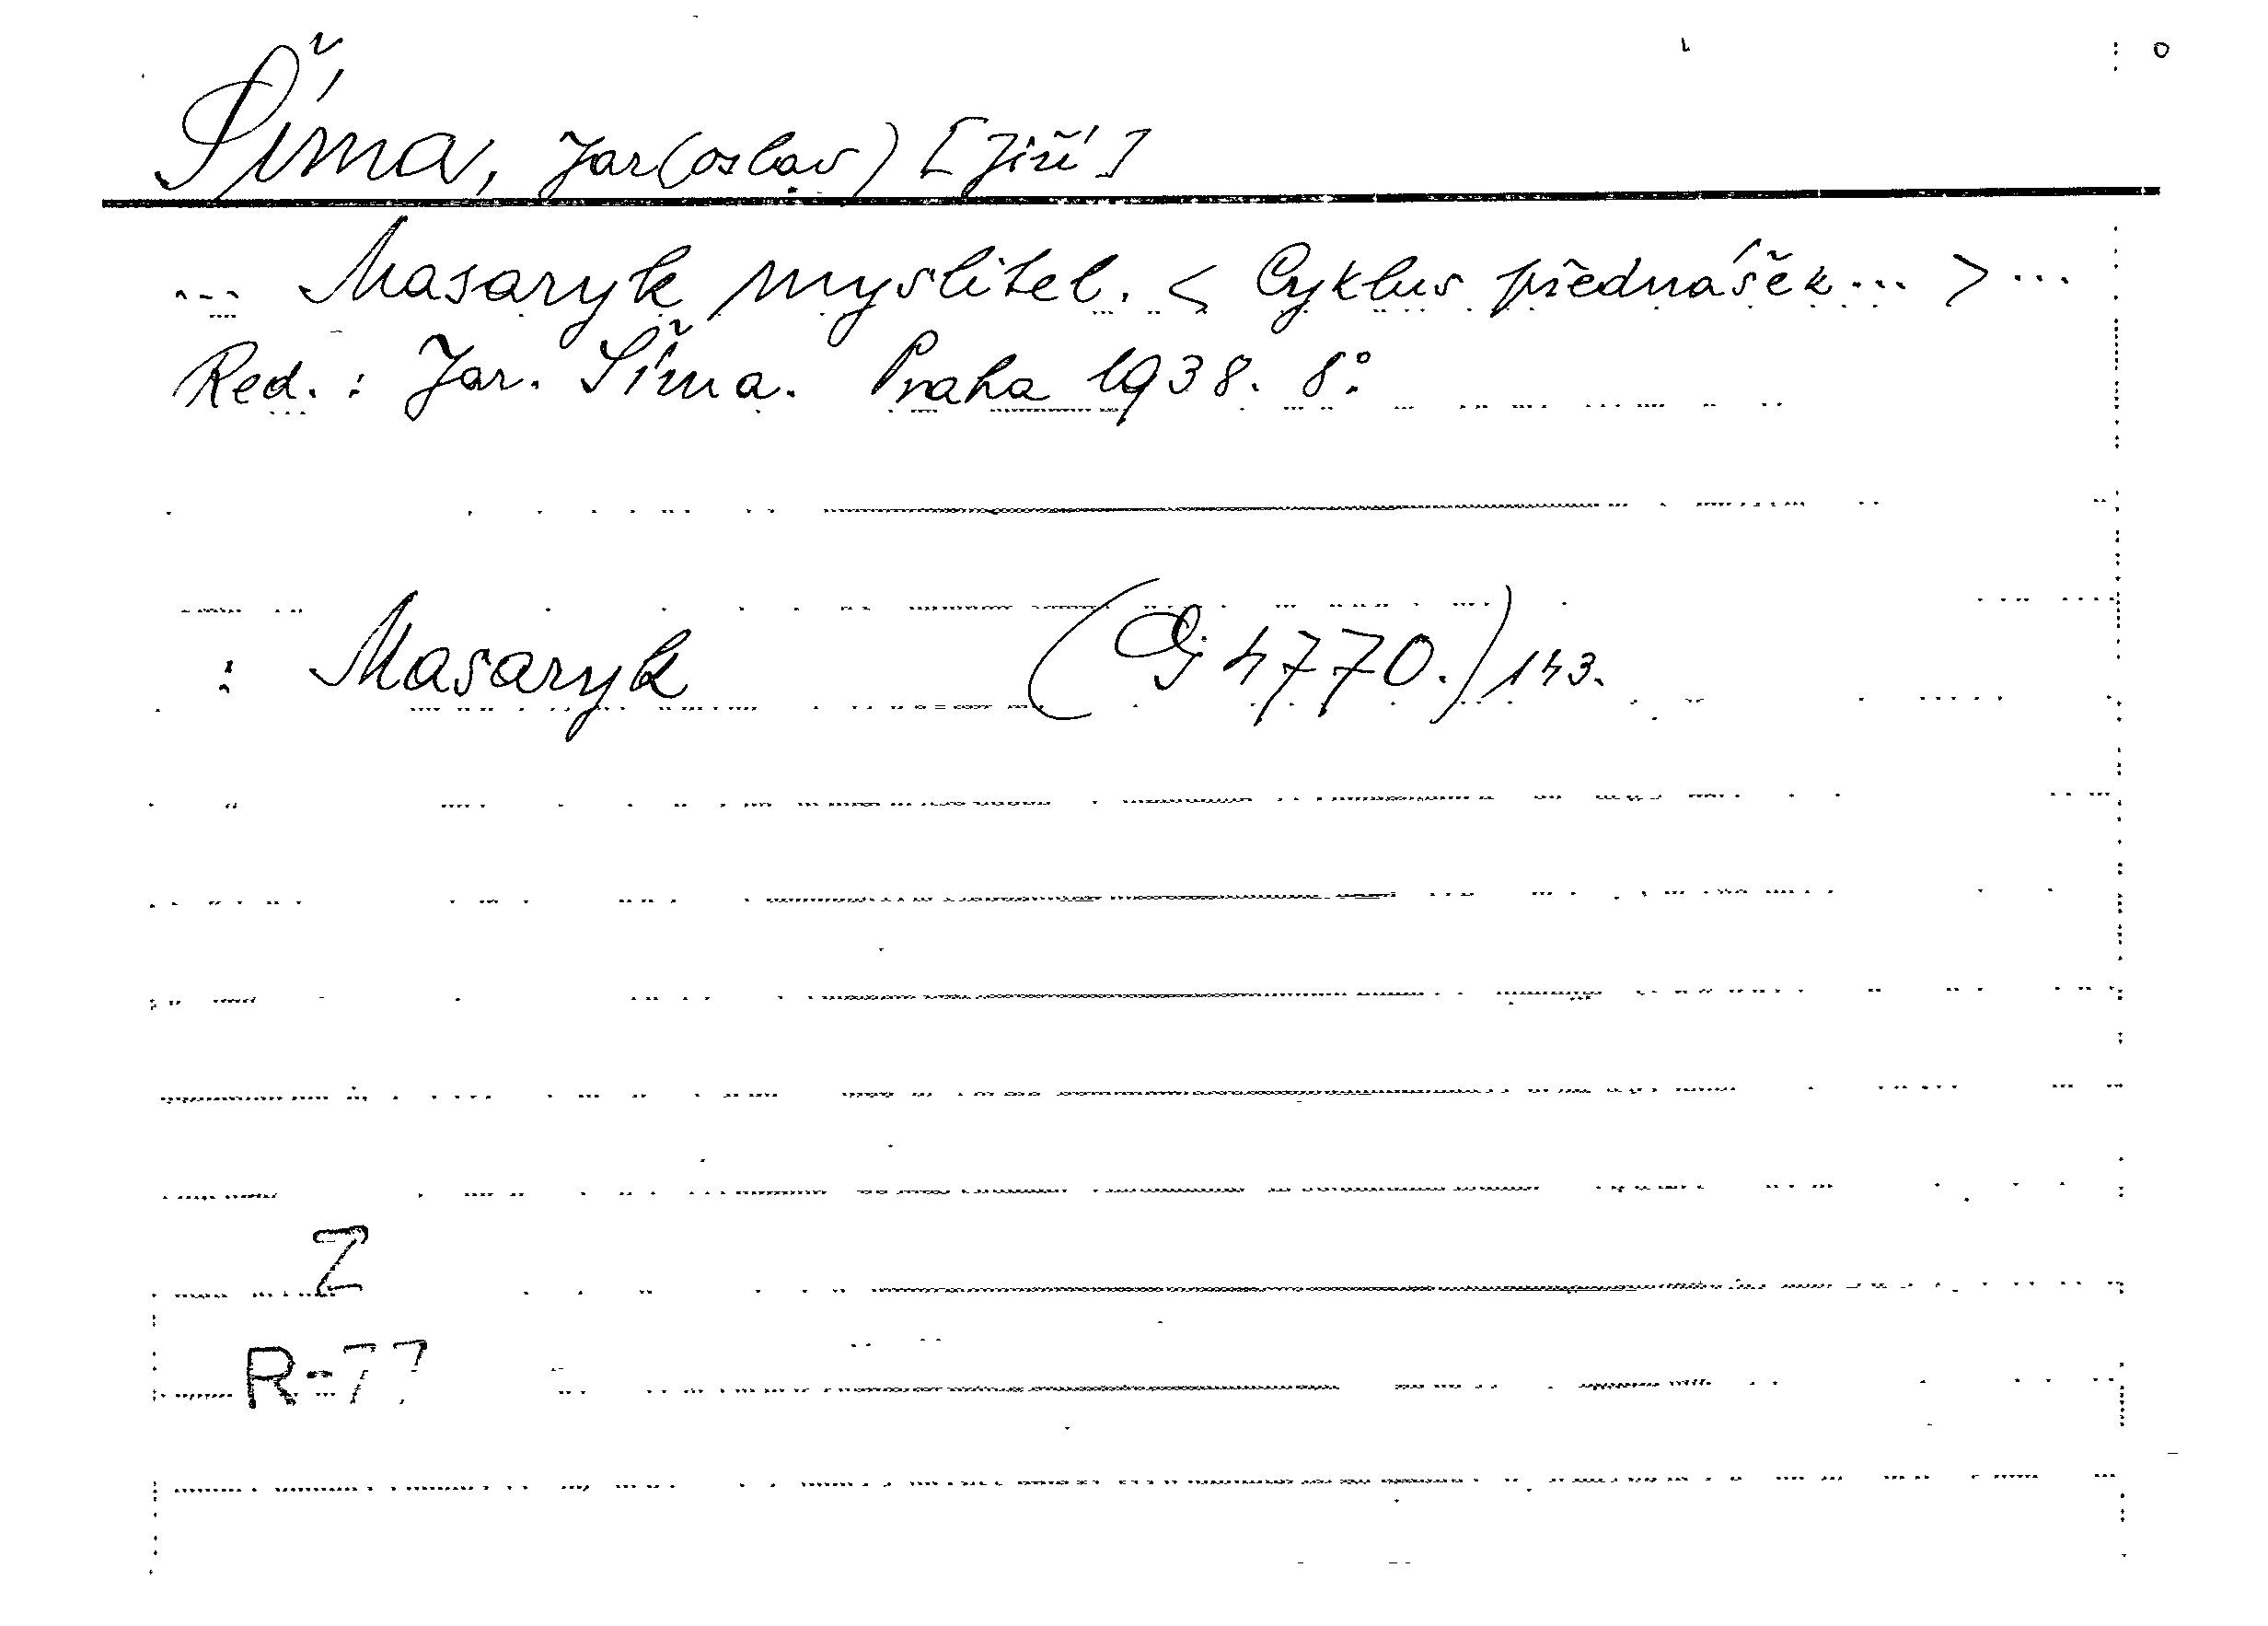 Šíma, Jar(oslav) [Jiří]
... Masaryk myslitel. < Cyklus přednášek... > ...
Red.: Jar. Šíma. Praha 1938. 8°.
: Masaryk (Cj 4770.) 143.
Z
R-77